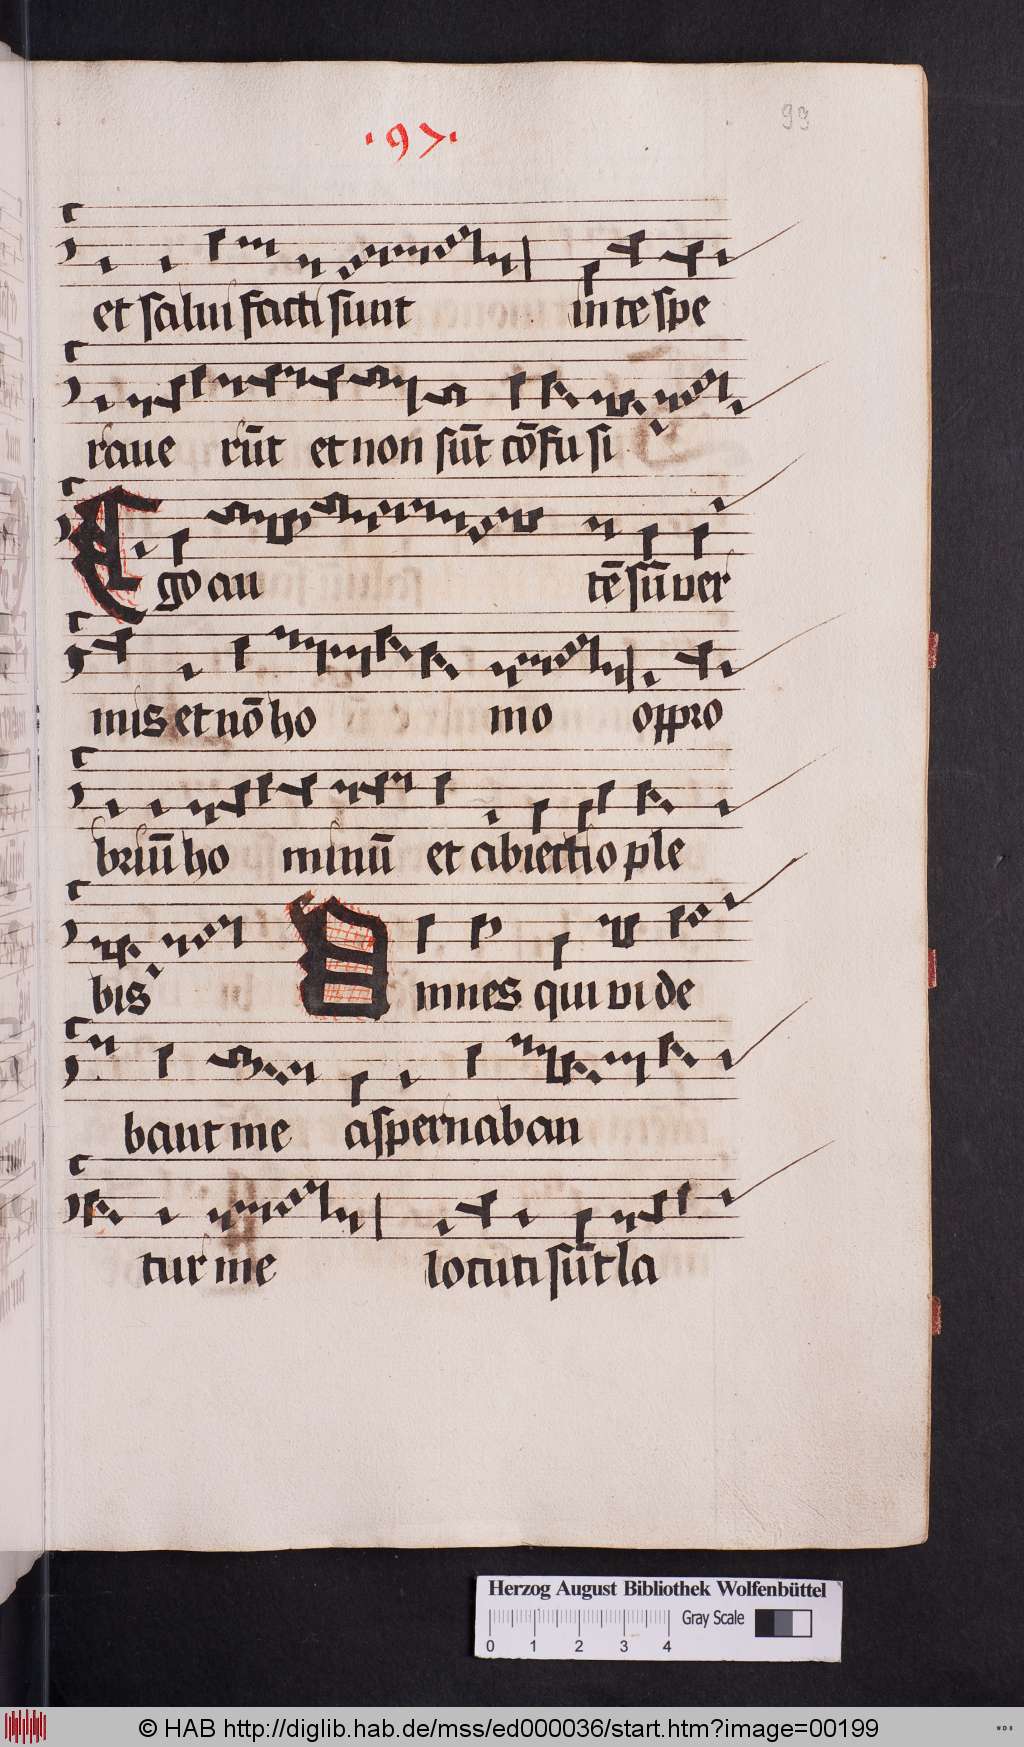 ·97·
99
et salui facti sunt in te spe
raue rūt et non sūt cōfu si
Ego au tē sū ver
mis et nō ho mo oppro
briū ho minū et abiectio ple
bis Omnes qui vi de
bant me aspernaban
tur me locuti sūt la
Herzog August Bibliothek Wolfenbüttel
Gray Scale
0 1 2 3 4
© HAB http://diglib.hab.de/mss/ed000036/start.htm?image=00199